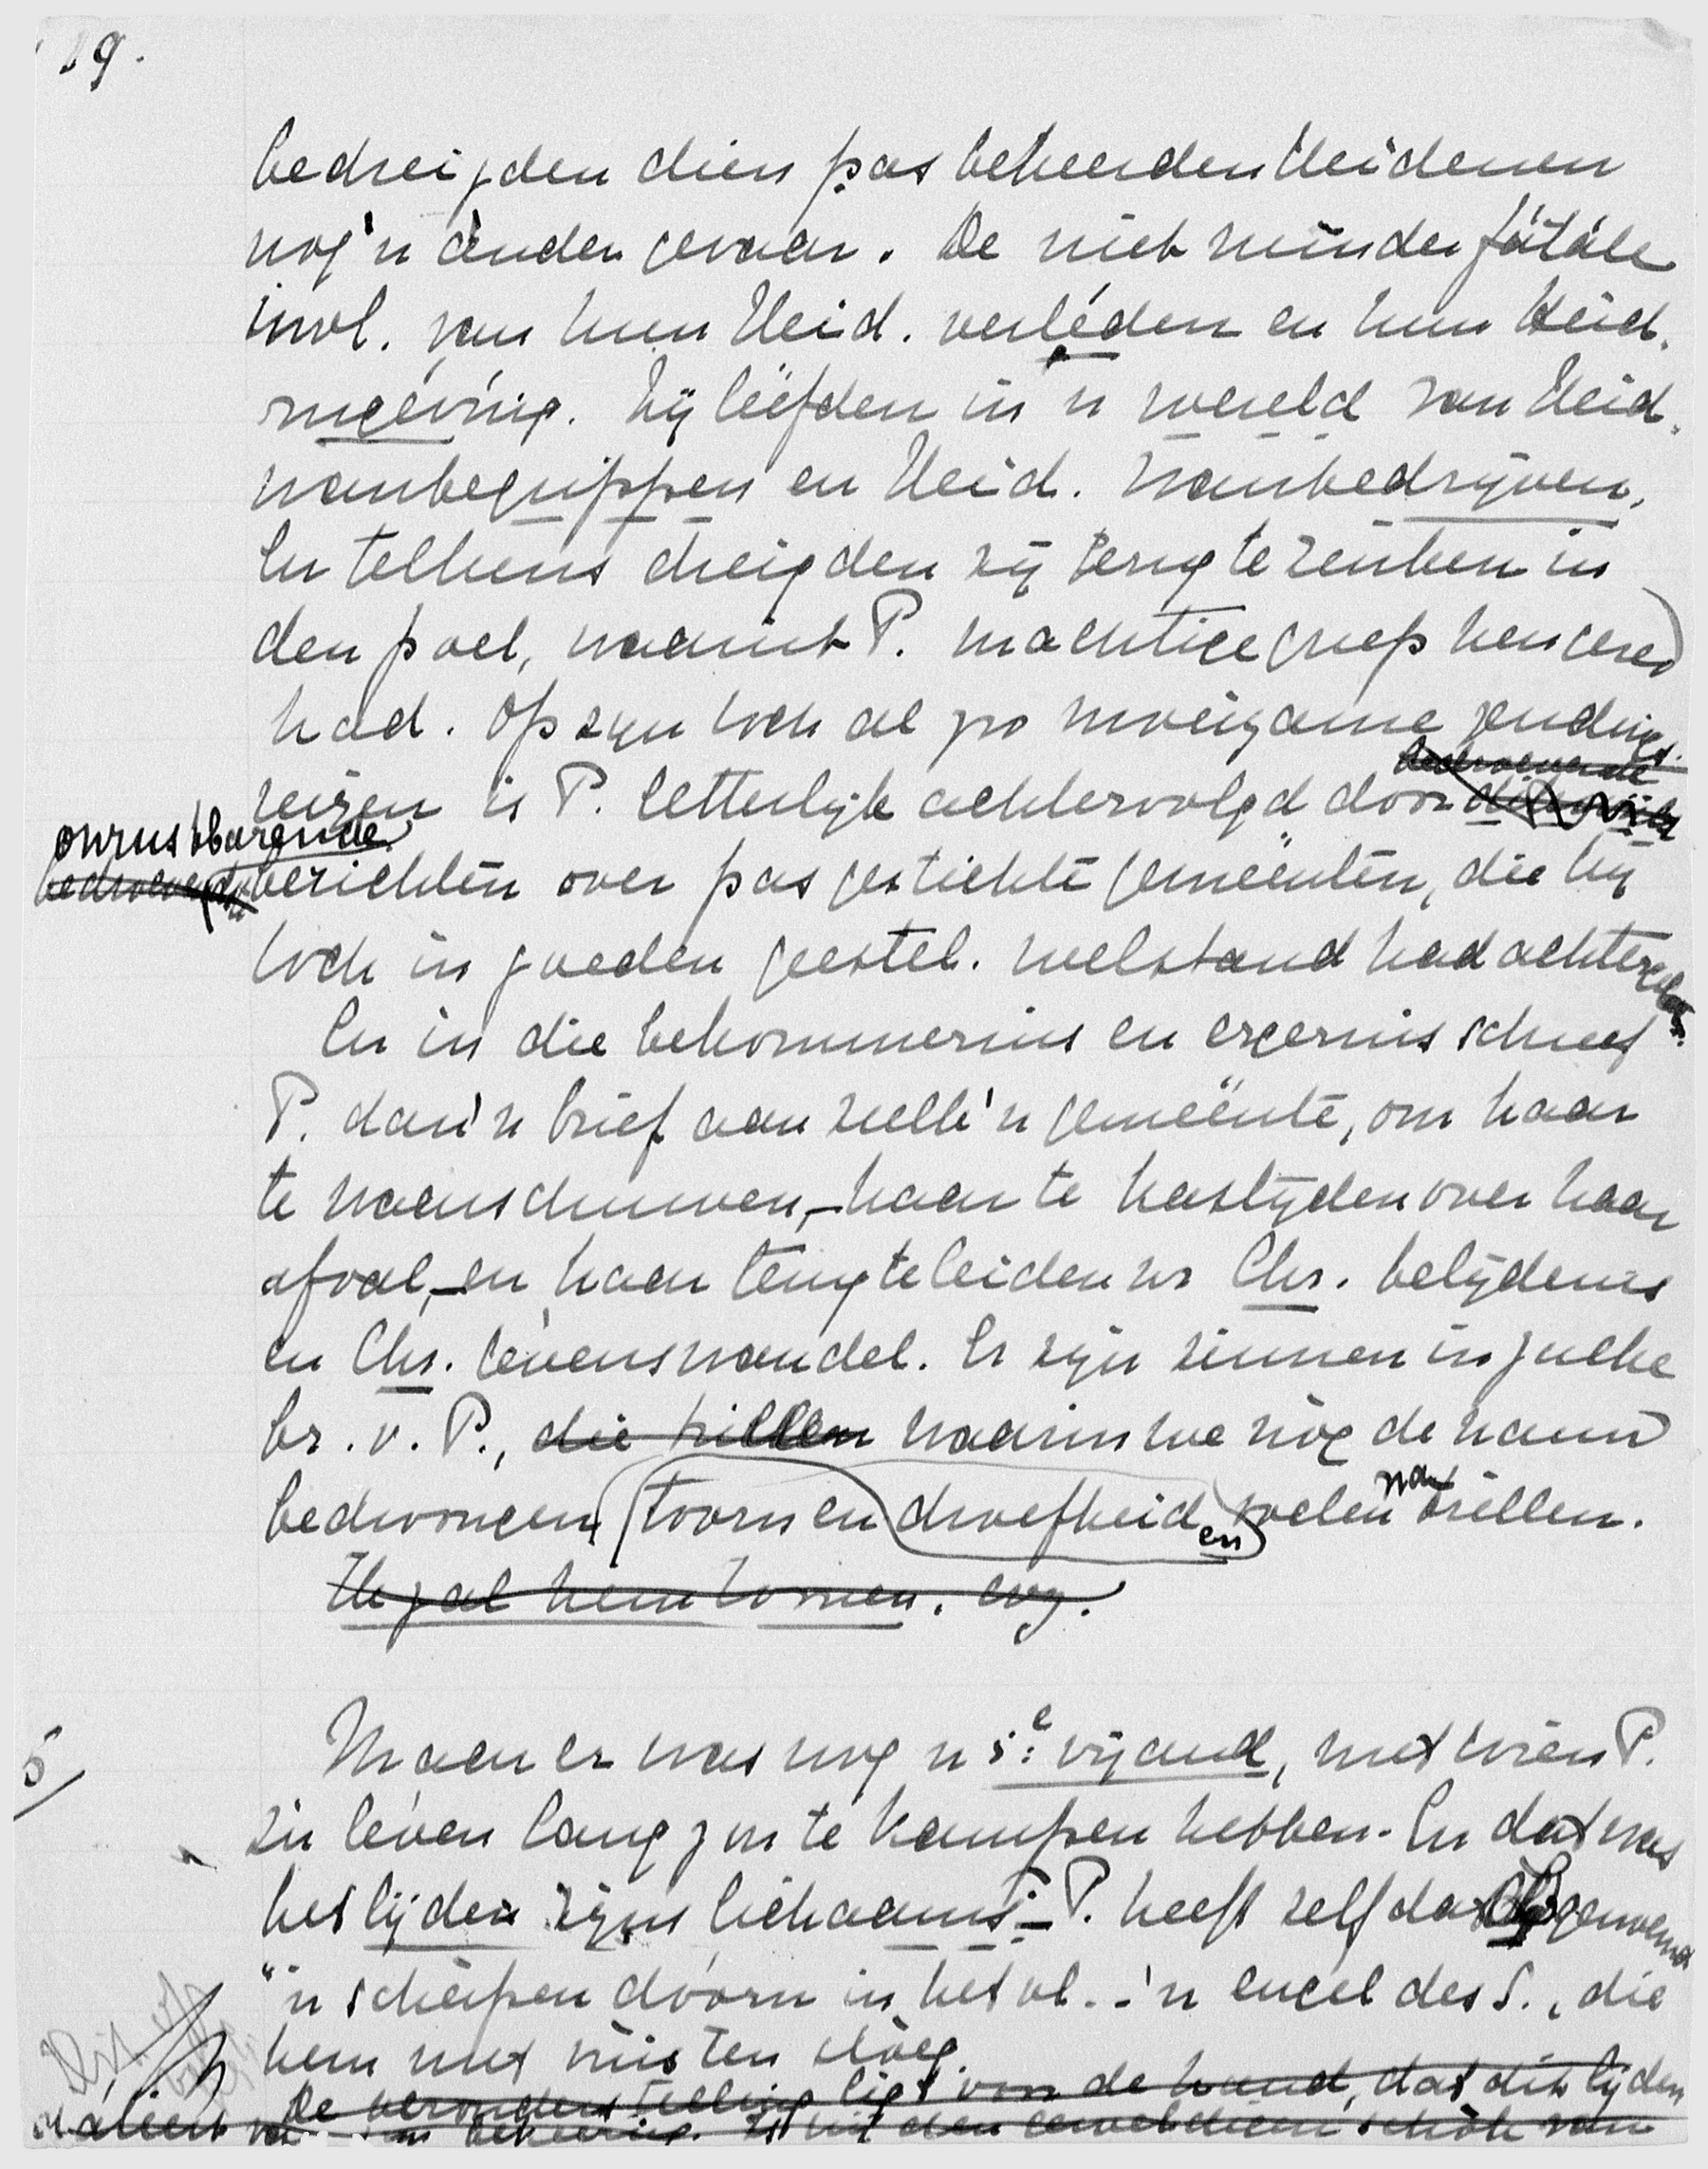 19.
bedreigden dien pas bekeerden Heidenen
nog 'n ànder gevaar. De niet minder fátále
invl. van hun Heid. verléden en hun Heid.
omgéving. Zij leefden in 'n wereld van Heid.
wanbegrippen en Heid. wanbedrijven.
En telkens dreigden zij terug te zinken in
den poel, waaruit P. machtige greep hen gered
had. Op zijn toch al zoo moeizame zendings-
bedroevende
reizen is P. letterlijk achtervolgd door
onrustbarende
bedroevende berichten over pas gestichte gemeenten, die hij
toch in goeden geestel. welstand had achtergel.
En in die bekommernis en ergernis schreef
P. dan 'n brief aan zulk 'n gemeente, om haar
te waarschuwen, – haar te kastijden over haar
afval, – en haar terug te leiden nr Chr. belijdenis
en Chr. lévenswandel. Er zijn zinnen in zulke
br. v. P., die trillen waarin we nóg de nauw
bedwongen toorn en droefheid en voelen natrillen.
Hij zal hem tonen. enz.
5/ Maar er was nog 'n 5e vijand, met wien P.
zn léven lang zou te kampen hebben. En dat was
het lijden zijns lichaams. – P. heeft zelf dat genoemd
"'n scherpen dóórn in het vl. – 'n engel des S., die
hem met vuisten slóeg.
De veronderstelling ligt voor de hand, dat dit lijden
bekeering. Is uit den geweldigen schok van